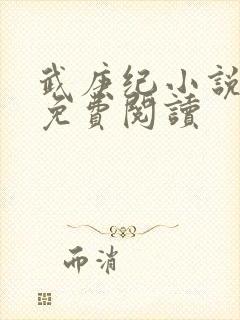 武庚纪小説
免費閱讀
而消